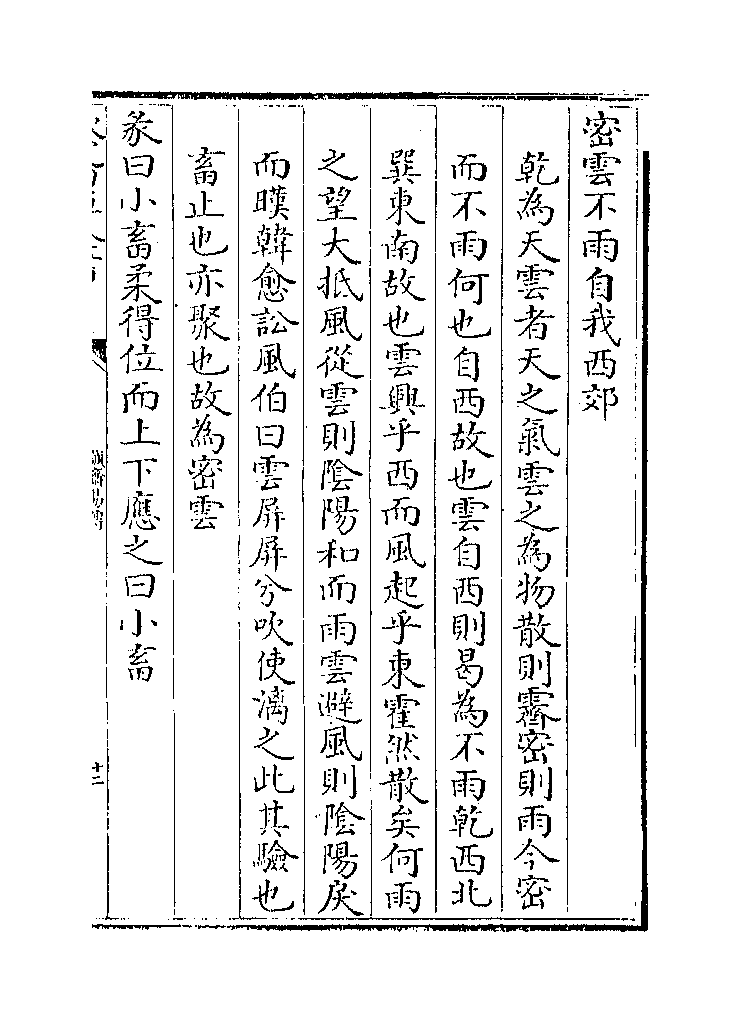 密雲不雨自我西郊
乾為天雲者天之氣雲之為物散則霽密則雨今密
而不雨何也自西故也雲自西則曷為不雨乾西北
巽東南故也雲興乎西而風起乎東霍然散矣何雨
之望大抵風從雲則陰陽和而雨雲避風則陰陽戾
而暵韓愈訟風伯曰雲屏屏兮吹使漓之此其驗也
畜止也亦聚也故為密雲
彖曰小畜柔得位而上下應之曰小畜
誠齋易傳
十二